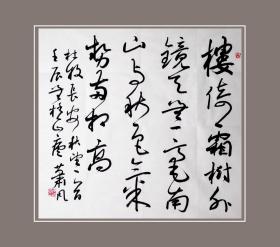 樓倚霜樹外
鏡天無一毫南
山与秋色氣
勢兩相高
杜牧長安秋望一首
壬辰 山 蕭风